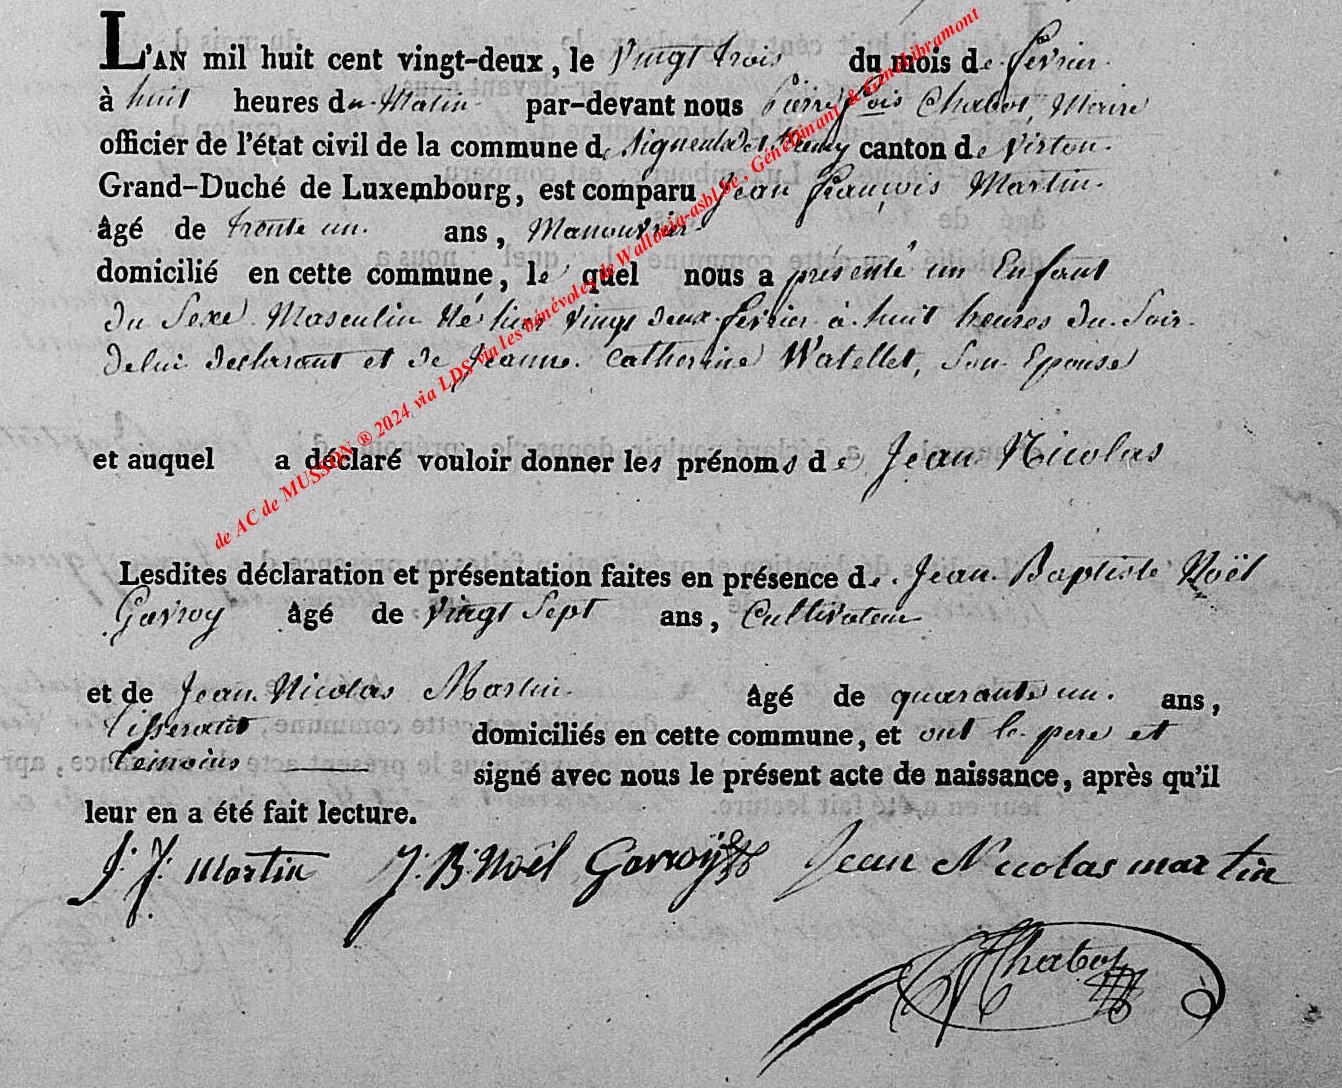 L'AN mil huit cent vingt-deux, le Vingt trois du mois de fevrier
à huit heures du Matin par-devant nous Pierre fcois Chabot, Maire
officier de l'état civil de la commune de Signeulx et canton de Virton
Grand-Duché de Luxembourg, est comparu Jean François Martin
âgé de trente un ans, Manouvrier
domicilié en cette commune, le quel nous a présenté un Enfant
du Sexe Masculin Né hier vingt deux fevrier à huit heures du Soir
de lui declarant et de Jeanne Catherine Watellet, Son Epouse
et auquel a déclaré vouloir donner les prénoms de Jean Nicolas
Lesdites déclaration et présentation faites en présence de Jean Baptiste Noël
Gavroy âgé de vingt Sept ans, Cultivateur
et de Jean Nicolas Martin âgé de quarante un ans,
Tisserant domiciliés en cette commune, et ont le pere et
Temoins signé avec nous le présent acte de naissance, après qu'il
leur en a été fait lecture.
J. f. Martin J: B: Noël Gavroÿ Jean Nicolas martin
Chabot
de AC de MUSSON ® 2024 via LDS via les bénévoles de Wallonia-asbl.be, Génédinant & Généhibramont